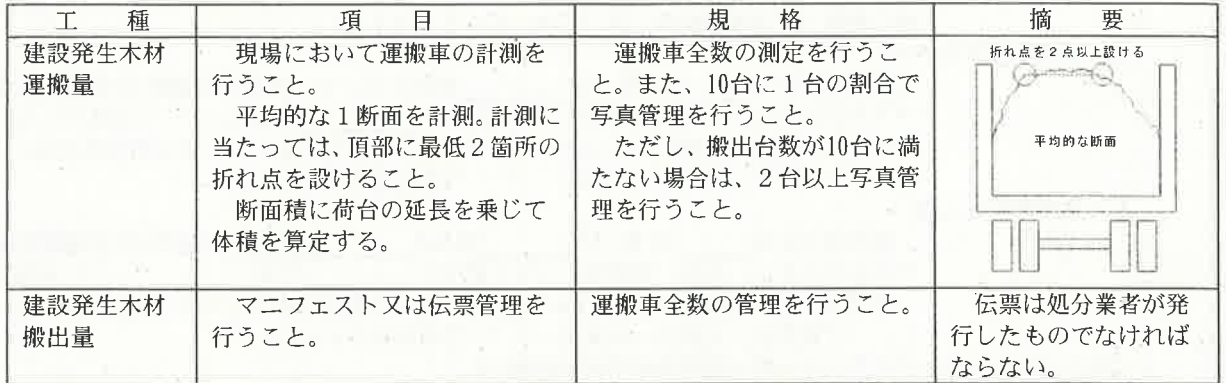 工　種
項　目
規　格
摘　要
建設発生木材
運搬量
現場において運搬車の計測を
行うこと。
平均的な１断面を計測。計測に
当たっては、頂部に最低２箇所の
折れ点を設けること。
断面積に荷台の延長を乗じて
体積を算定する。
運搬車全数の測定を行うこ
と。また、10台に１台の割合で
写真管理を行うこと。
ただし、搬出台数が10台に満
たない場合は、２台以上写真管
理を行うこと。
折れ点を２点以上設ける
平均的な断面
建設発生木材
搬出量
マニフェスト又は伝票管理を
行うこと。
運搬車全数の管理を行うこと。
伝票は処分業者が発
行したものでなければ
ならない。